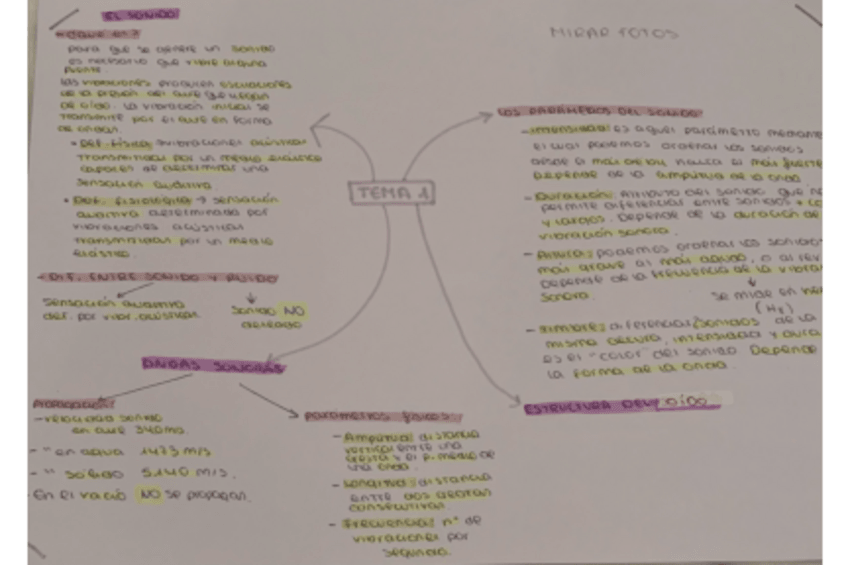 EL SONIDO
- ¿QUÉ ES?
para que se genere un sonido
es necesario que vibre alguna
fuente.
las vibraciones producen oscilaciones
de la presión del aire que llegan
al oído. La vibración inicial se
transmite por el aire en forma
de ondas.
• DEF. FÍSICA: vibraciones acústicas
transmitidas por un medio elástico
capaces de determinar una
sensación auditiva.
• DEF. fisiológica → sensación
auditiva determinada por
vibraciones acústicas
transmitidas por un medio
elástico.
- DIF. ENTRE SONIDO Y RUIDO
sensación auditiva
det. por vibr. acústicas
Sonido NO
deseado
TEMA 1
MIRAR FOTOS
LOS PARÁMETROS DEL SONIDO
- Intensidad: es aquel parámetro mediante
el cual podemos ordenar los sonidos
desde el más débil hasta el más fuerte
Depende de la amplitud de la onda.
- Duración: Atributo del sonido que
permite diferenciar entre sonidos
y largos. Depende de la duración de
vibración sonora.
- Altura: podemos ordenar los sonidos
más grave al más agudo, o al rev
Depende de la frecuencia de la vibrac
sonora.
se mide en
(Hz)
- timbre: diferencias sonidos de la
misma altura, intensidad y dura
es el "color" del sonido. Depende
la forma de la onda.
ESTRUCTURA DEL OÍDO
ONDAS SONORAS
PROPAGACIÓN:
- velocidad sonido
en aire 340ms.
- " en agua 1473 m/s
- " sólido 5140 m/s.
- En el vacío NO se propagan.
parámetros físicos
- Amplitud: distancia
vertical entre una
cresta y el p. medio de
una onda.
- Longitud: distancia
entre dos crestas
consecutivas.
- Frecuencia: nº de
vibraciones por
segundo.